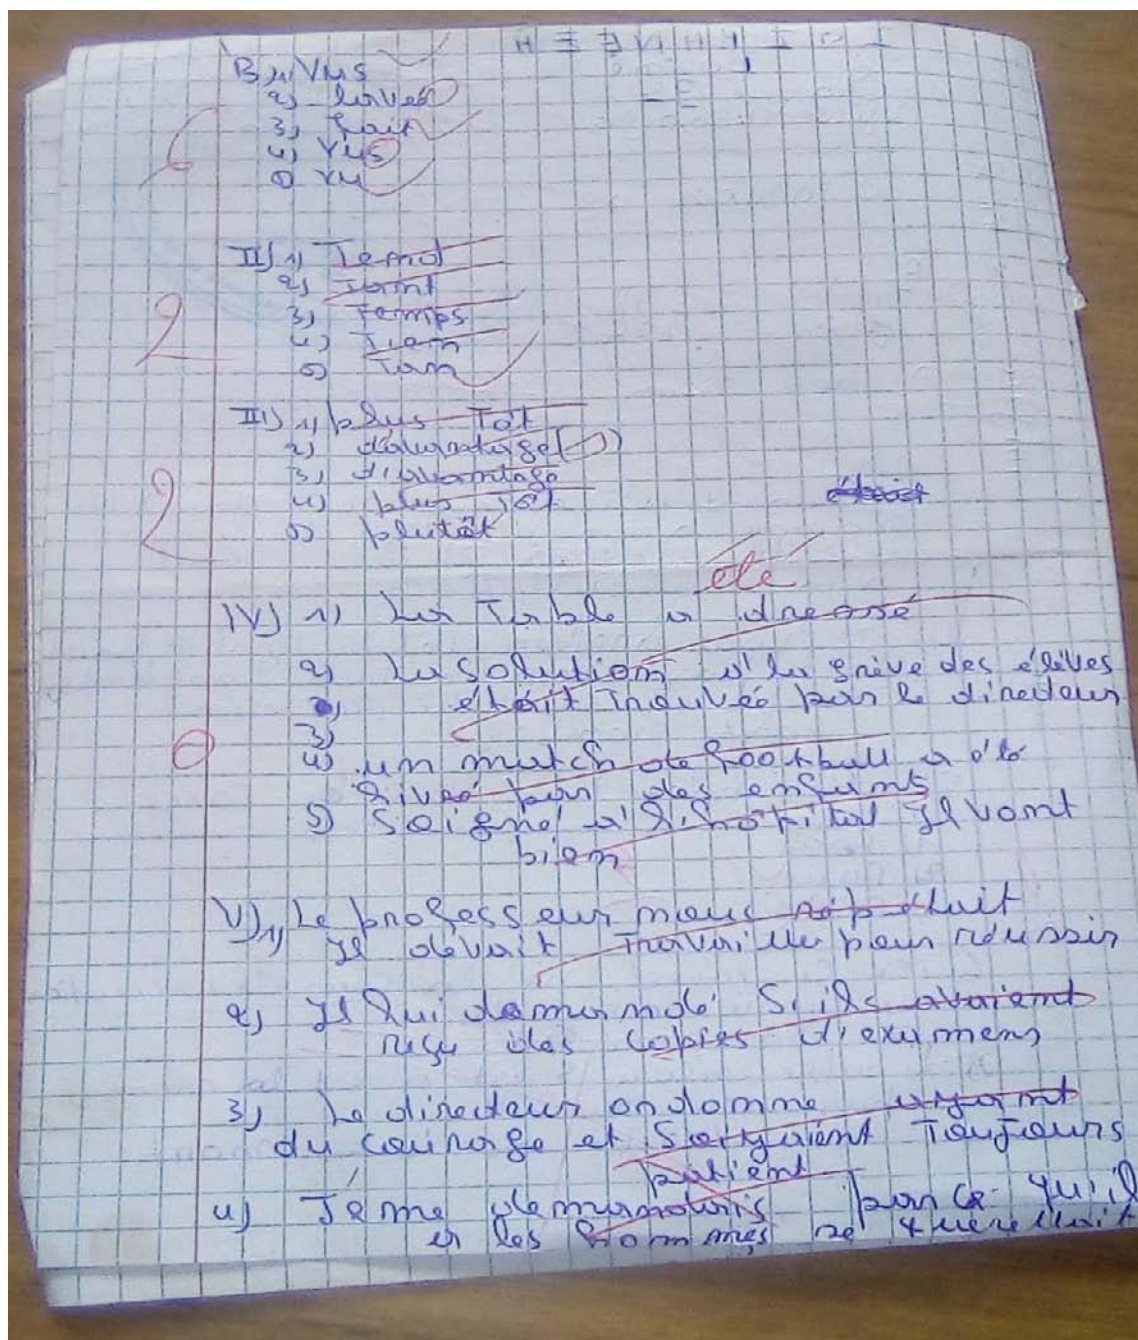 B 1) Vus
2) lavés
3) fait
4) vus
5) vu
6
II) 1)
2) Tant
3) Temps
4)
5) Tan
2
III) 1) plus Tôt
2) davantage
3) d'avantage
4) plus tôt
5) plutôt
2
été
IV) 1) La Table a dressé
2) La solution a' la grève des élèves
était trouvée par le directeur
3)
4) un match de football a été
livré par des enfants
5) Soigné a' l'hôpital Il vont
bien
0
V) 1) Le professeur nous
Il devait pour réussir
2) Il lui S'ils avaient
reçu des copies d'examens
3) Le directeur ordonne ayant
du courage et Toujours
patient
4) Je me par ce qu'il
les hommes se